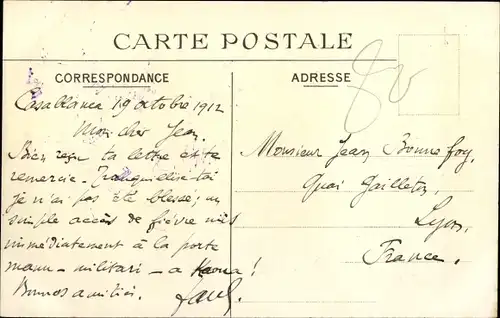 CARTE POSTALE
CORRESPONDANCE
ADRESSE
Casablanca 19 octobre 1912
Mon cher Jean.
Bien reçu ta lettre et te
remercie - Tranquilise toi
je n'ai pas été blessé; un
simple accès de fièvre m'a mis
immédiatement à la porte
manu - militari - a
Bonnes amitiés.
Monsieur Jean Bonnefoy,
Quai Gailleton,
Lyon,
France.